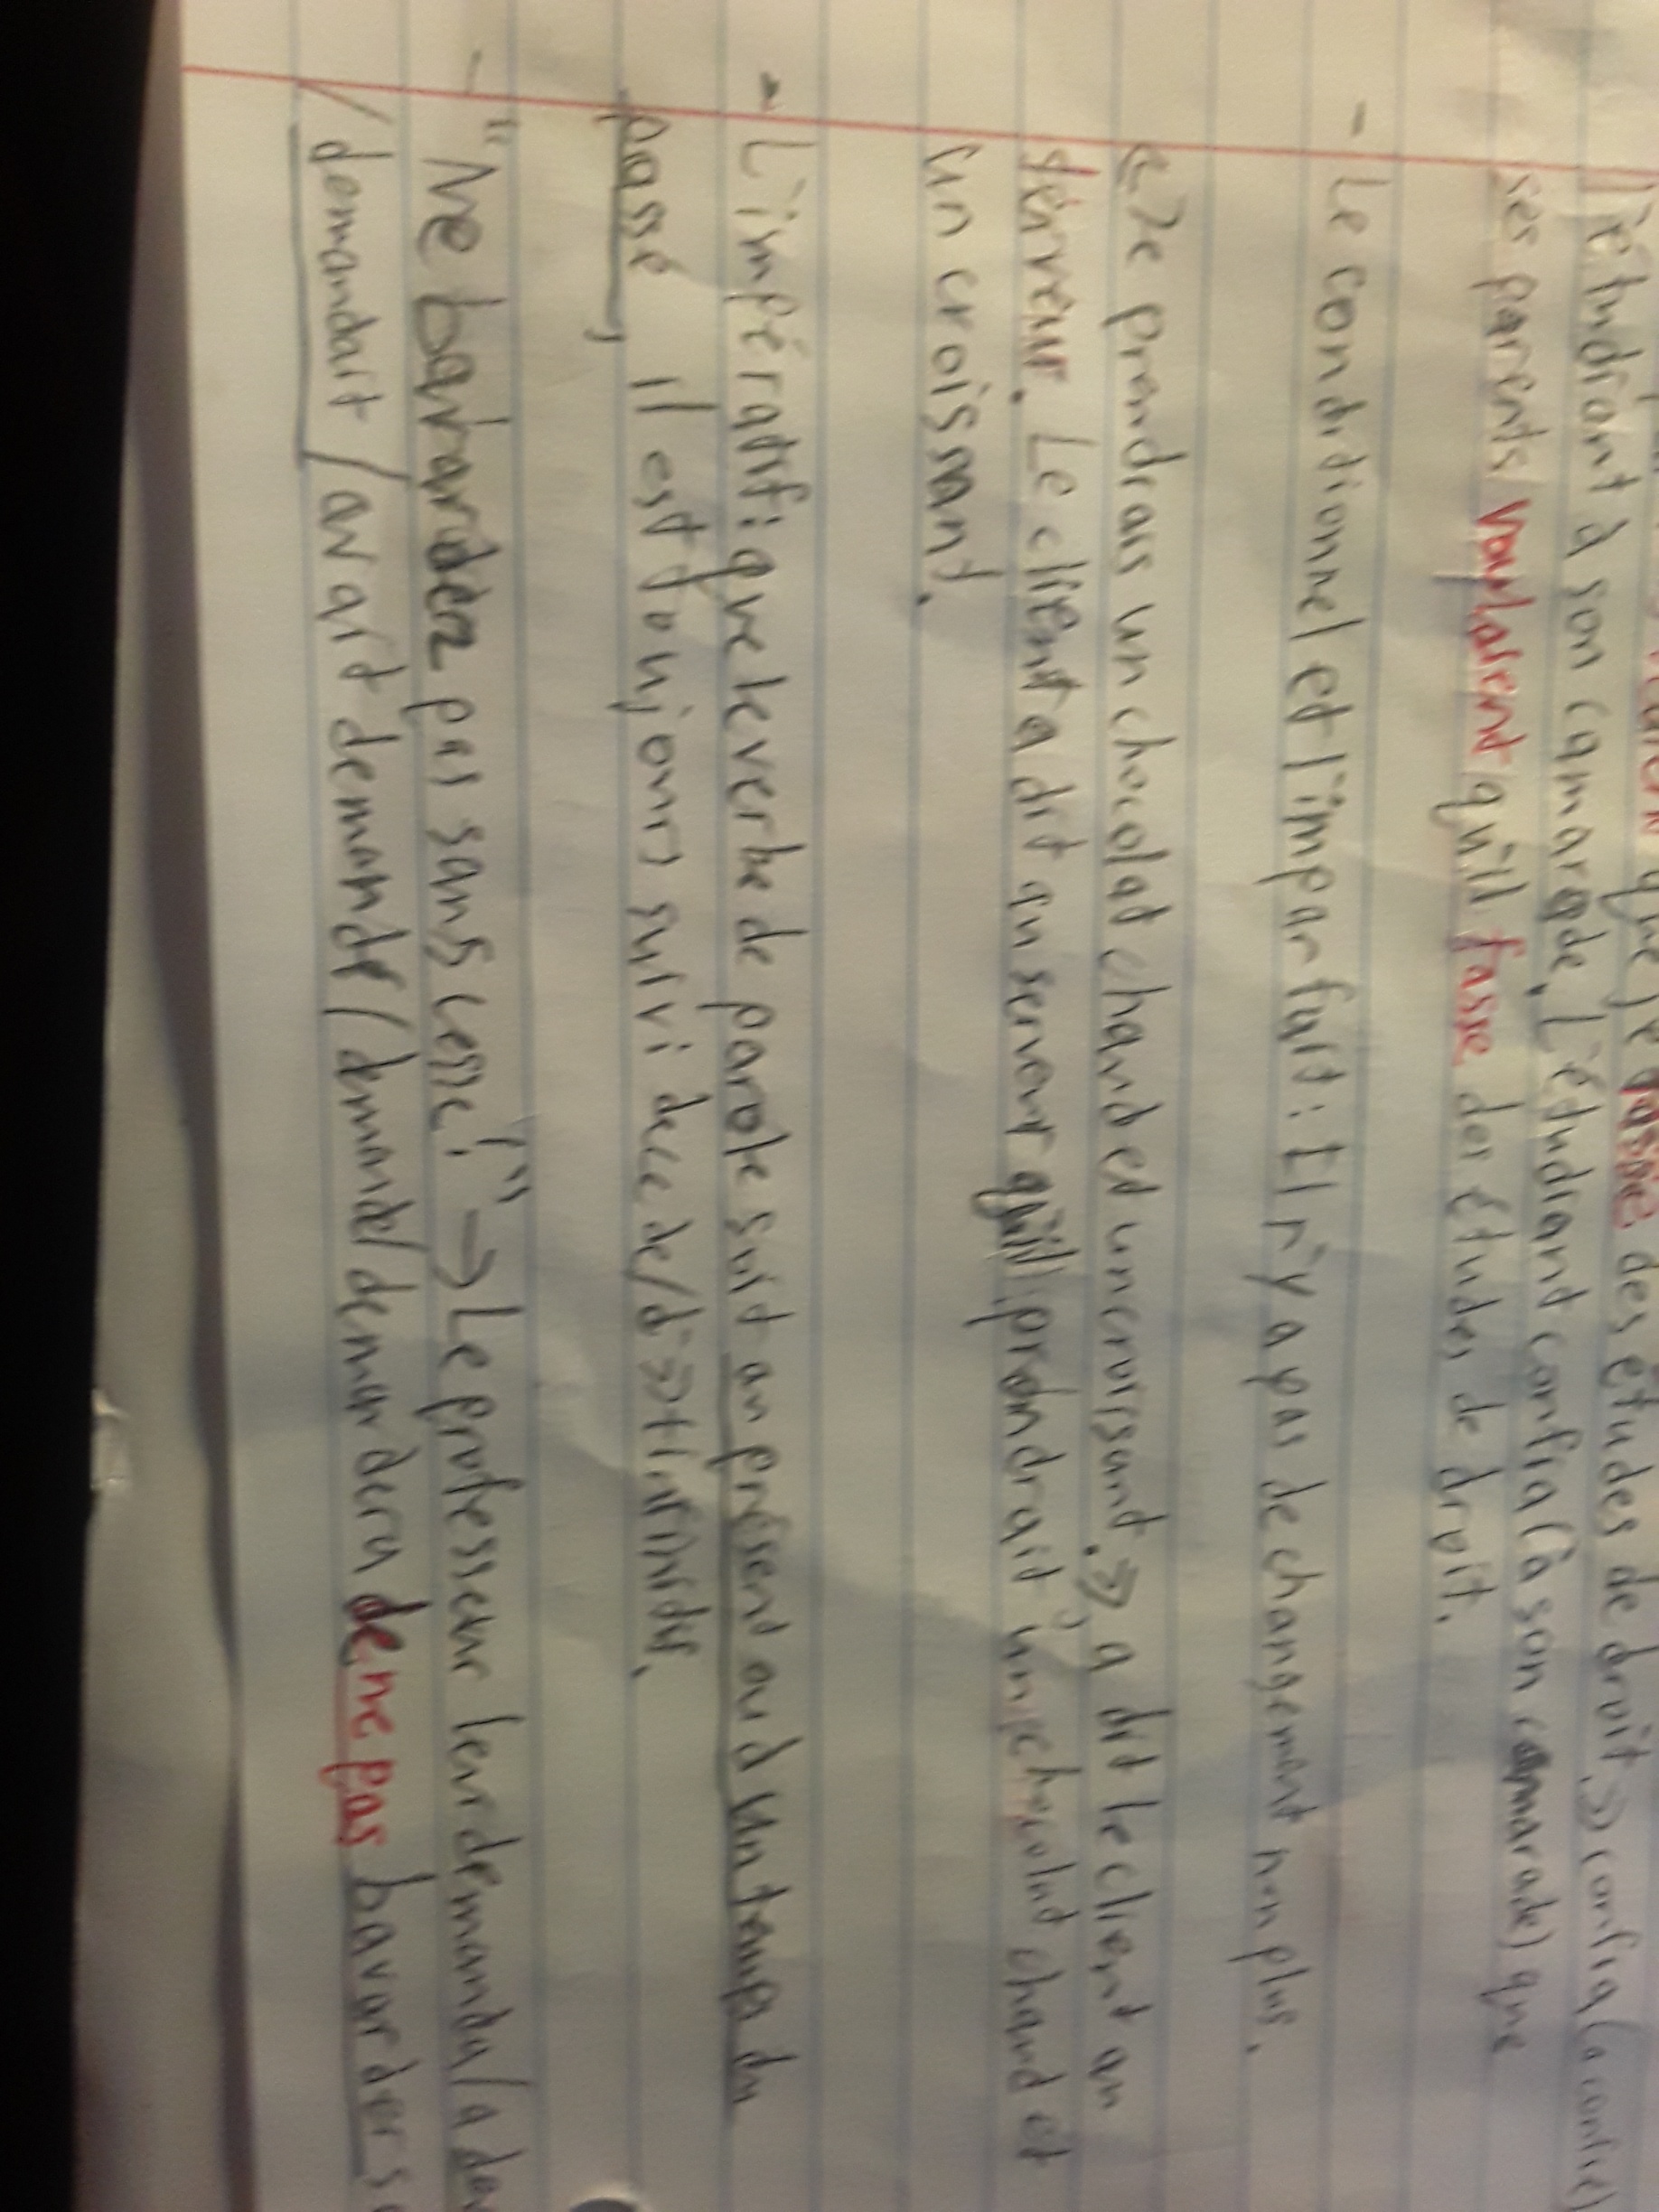 veulent que je fasse des études de droit >> confia (a confié)
l'étudiant à son camarade. L'étudiant confia (à son camarade) que
ses parents voulaient qu'il fasse des études de droit.
- Le conditionnel et l'imparfait: Il n'y a pas de changement non plus.
<<Je prendrais un chocolat chaud et un croissant.>>, a dit le client au
serveur. Le client a dit au serveur qu'il prendrait un chocolat chaud et
un croissant.
- L'impératif: que le verbe de parole soit au présent ou à un temps du
passé, il est toujours suivi de << de/d' >> + l'infinitif.
- "Ne bavardez pas sans cesse!" -> Le professeur leur demanda/a
/demandait/avait demandé/demande/demandera de ne pas bavarder